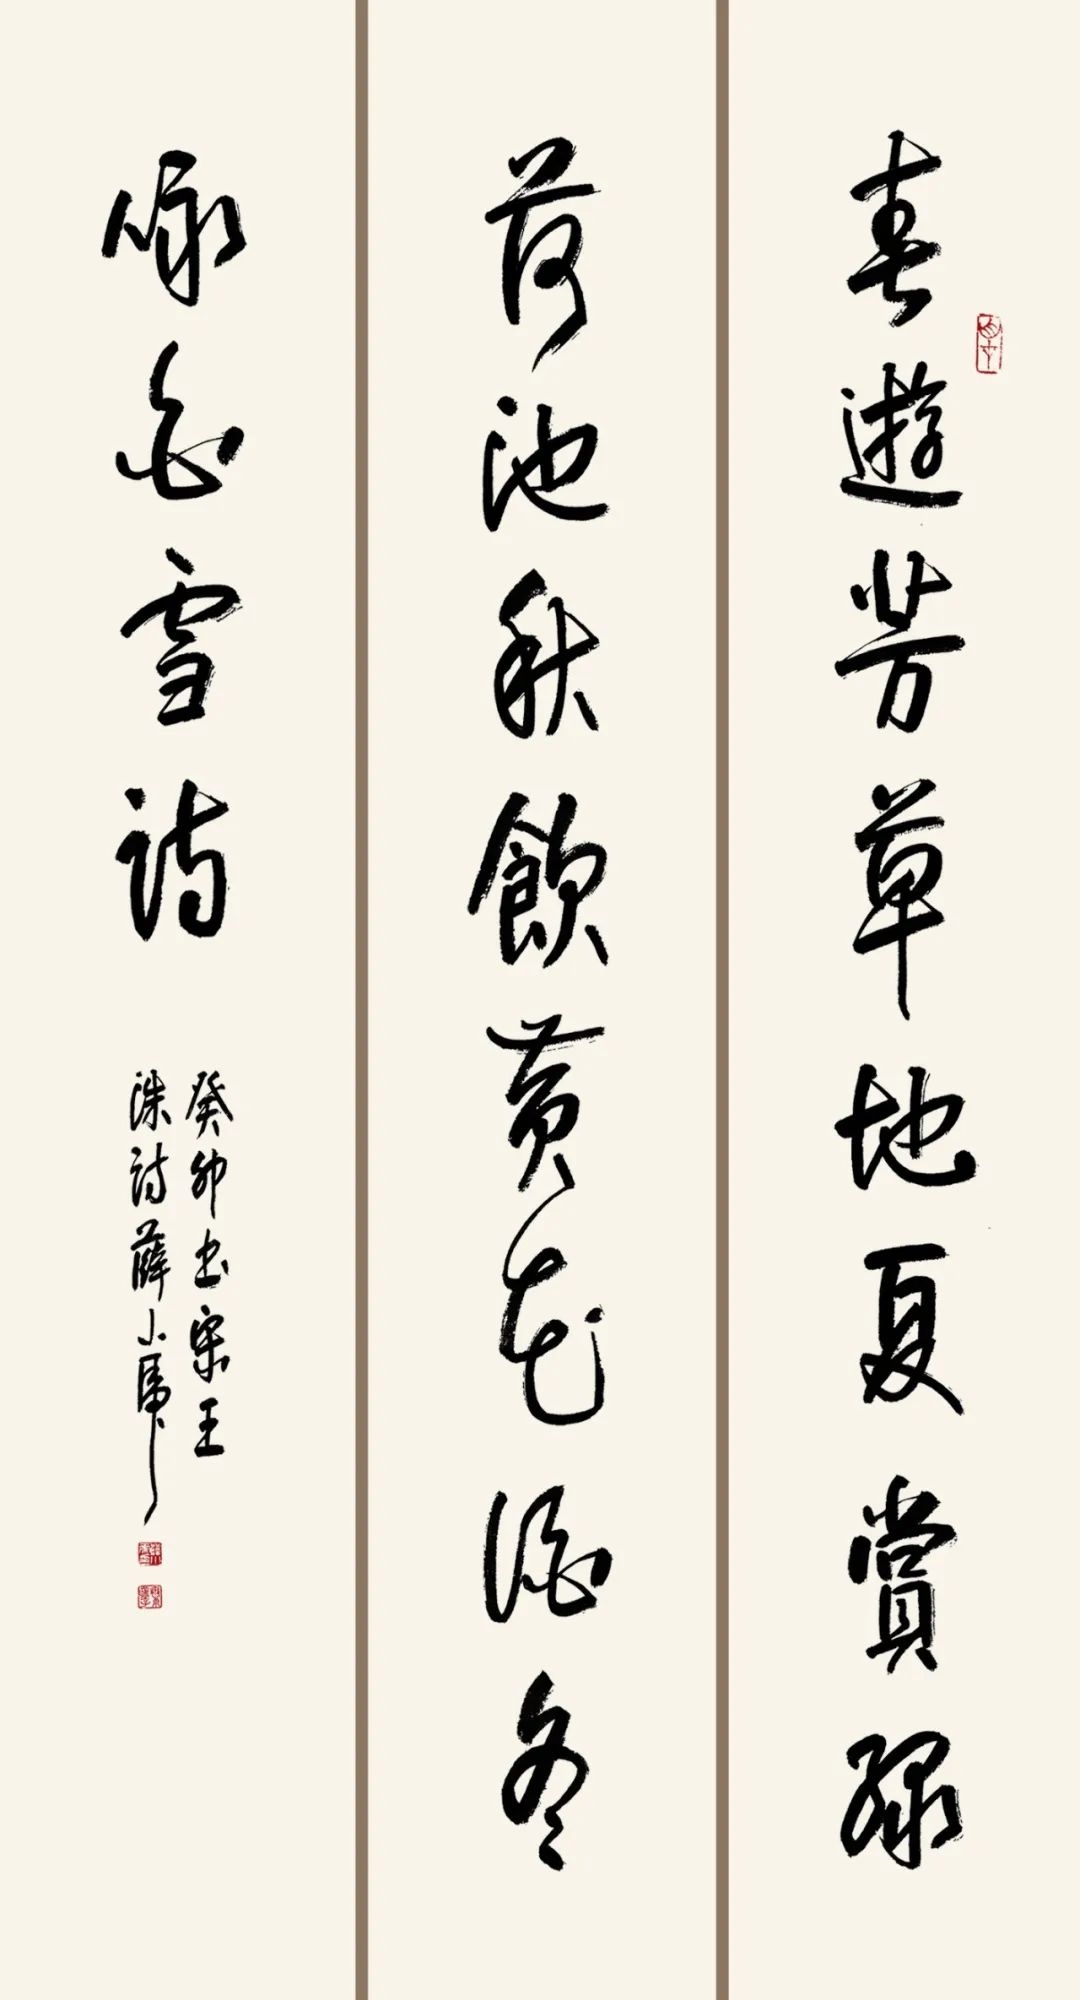 春遊芳草地夏賞綠
荷池秋飲黄花酒冬
吟白雪詩
癸卯书宋王
洙詩薛小虎